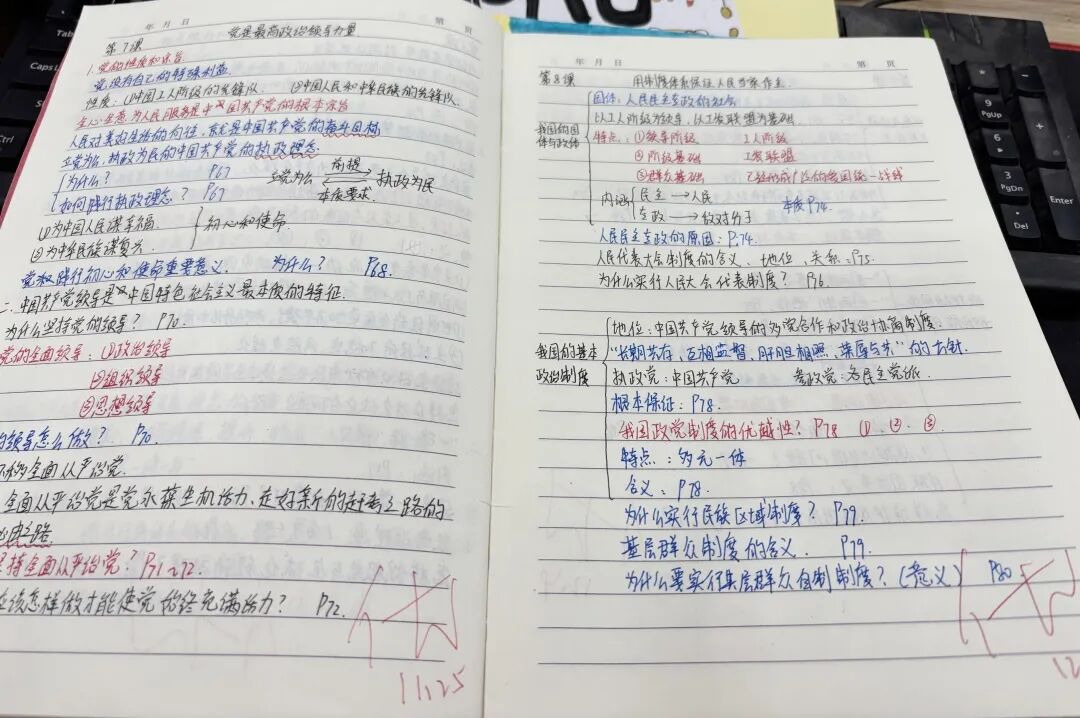 年 月 日 第 页
第7课 党是最高政治领导力量
1.党的性质和宗旨
党没有自己的特殊利益
性质:①中国工人阶级的先锋队 ②中国人民和中华民族的先锋队
全心全意为人民服务是中国共产党的根本宗旨
人民对美好生活的向往,就是中国共产党的奋斗目标
立党为公,执政为民的中国共产党的执政理念
为什么? P67 立党为公 前提 执政为民
如何践行执政理念? P67 本质要求
①为中国人民谋幸福
②为中华民族谋复兴 初心和使命
党践行初心和使命重要意义. 为什么? P68.
二.中国共产党领导是中国特色社会主义最本质的特征.
为什么坚持党的领导? P70.
党的全面领导:①政治领导
②组织领导
③思想领导
领导怎么做? P70
全面从严治党
全面从严治党是党永葆生机活力,走好新的赶考之路的
之路
持全面从严治党? P71~72.
应该怎样做才能使党始终充满活力? P72.
11.25
年 月 日 第 页
第8课 用制度体系保证人民当家作主
我国的国体与政体
国体:人民民主专政的社会
以工人阶级为领导,以工农联盟为基础
特点:①领导阶级 工人阶级
②阶级基础 工农联盟
③群众基础 统一战线
内涵 民主→人民 本质P74.
专政→敌对分子
人民民主专政的原因:P74.
人民代表大会制度的含义、地位、关系:P75
为什么实行人民大会代表制度? P76
我国的基本政治制度
地位:中国共产党领导的多党合作和政治协商制度.
“长期共存,互相监督,肝胆相照,荣辱与共”的方针.
执政党:中国共产党 参政党:各民主党派
根本保证:P78.
我国政党制度的优越性? P78 ①、②、③
特点:多元一体
含义:P78.
为什么实行民族区域制度? P79
基层群众制度的含义. P79.
为什么要实行基层群众自制制度?(意义) P80.